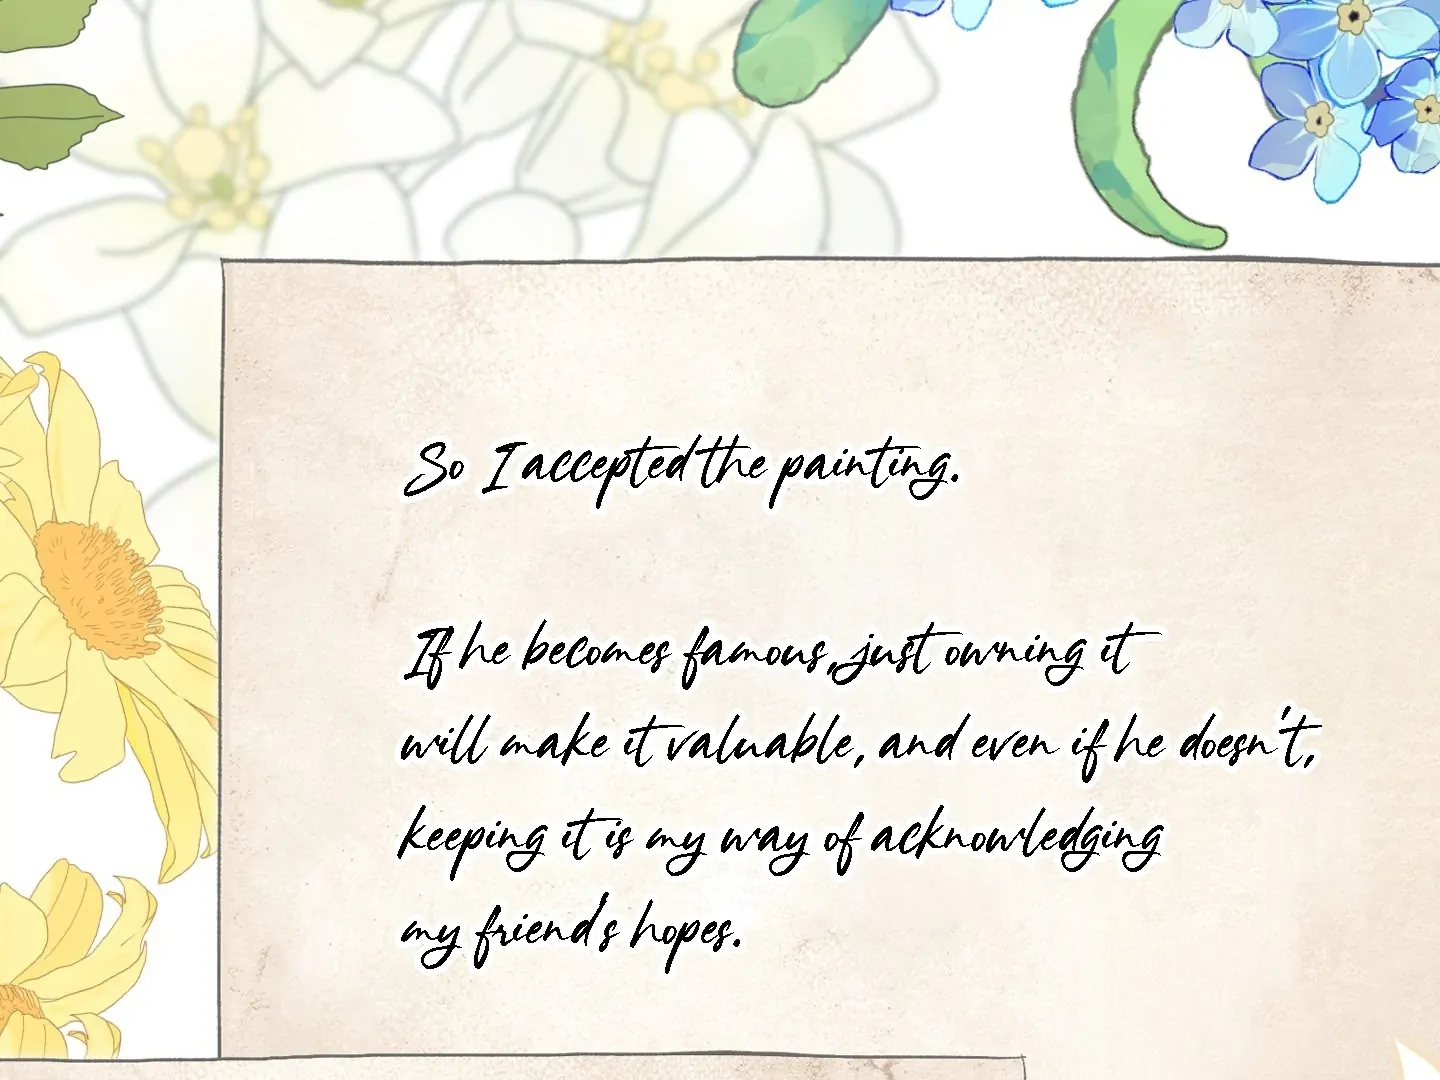 So I accepted the painting.
If he becomes famous, just owning it
will make it valuable, and even if he doesn't,
keeping it is my way of acknowledging
my friend's hopes.